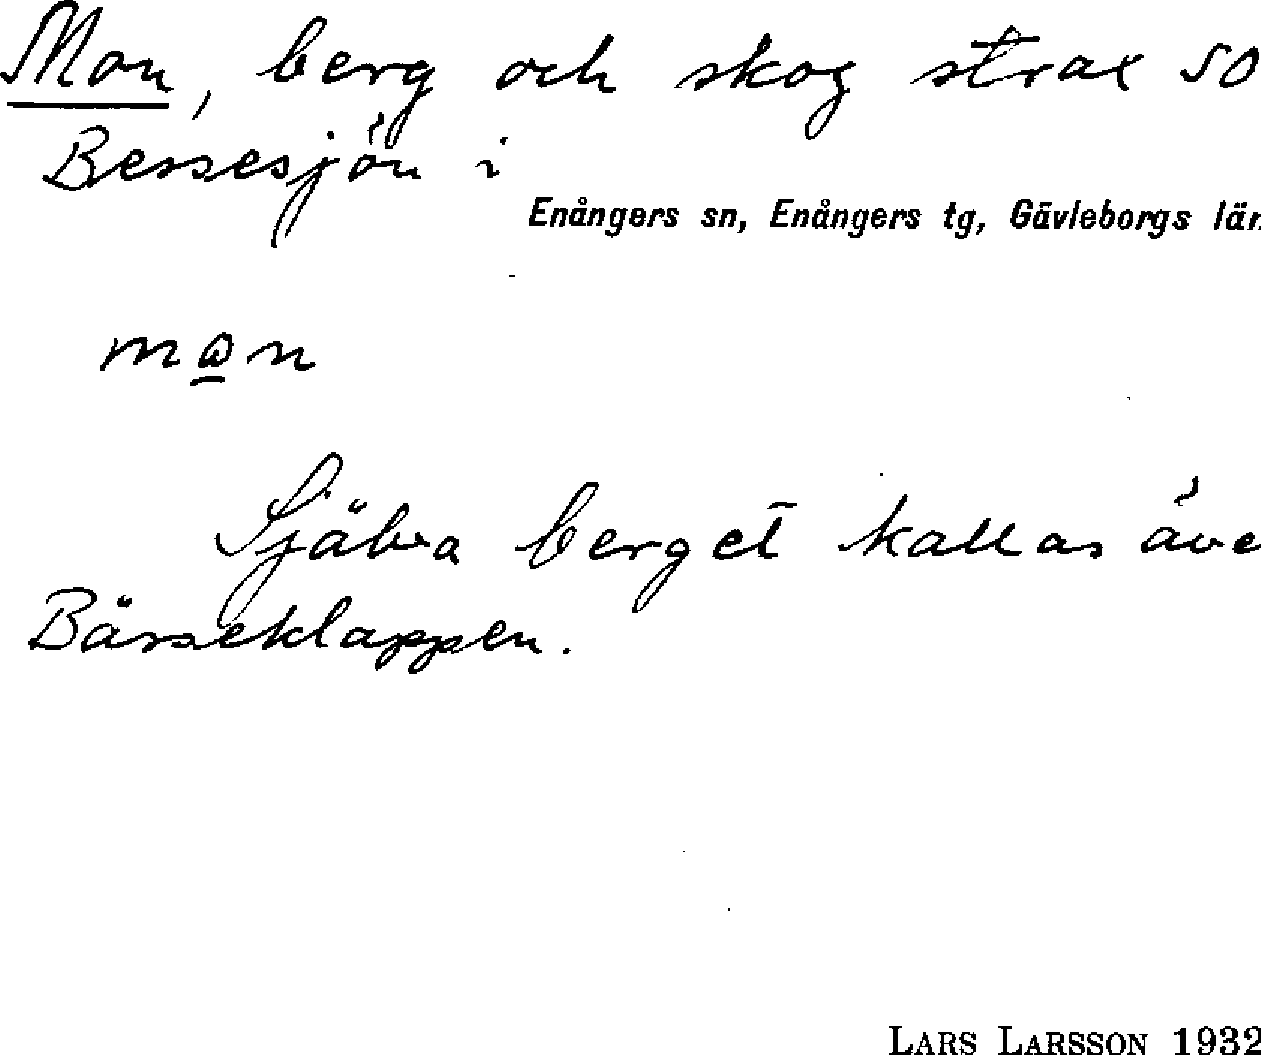 Mon, berg och skog strax SO
Bessesjön i
Enångers sn, Enångers tg, Gävleborgs län
mon
Själva berget kallas äve
Bässeklappen.
LARS LARSSON 1932